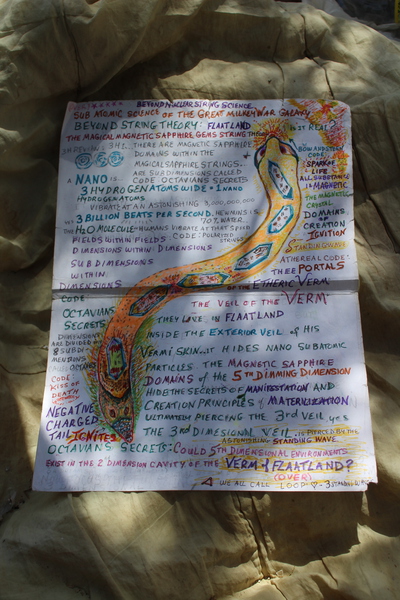 BEYOND NUCLEAR STRING SCIENCE
SUB ATOMIC SCIENCE OF THE GREAT MILKEY WAR GALAXY
BEYOND STRING THEORY: FLAATLAND
IS IT REAL?
THE MAGICAL MAGNETIC SAPPHIRE GEMS STRING THEORY
THERE ARE MAGNETIC SAPPHIRE
DOMAINS WITHIN THE
MAGICAL SAPPHIRE STRINGS.
ARE SUB DIMENSIONS CALLED
CODE OCTAVIANS SECRETS
A NANO IS
3 HYDROGEN ATOMS WIDE = 1 NANO
HYDROGEN ATOMS
VIBRATE AT AN ASTONISHING 3,000,000,000
3 BILLION BEATS PER SECOND. HEWMINS IS
70% WATER
THE H2O MOLECULE = HUMANS VIBRATE AT THAT SPEED
FIELDS WITHIN FIELDS. CODE: POLARIZED
STRINGS
DIMENSIONS WITHIN DIMENSIONS
SUB DIMENSIONS
WITHIN
DIMENSIONS
BOW AND STERN
CODE:
SPARK OF
LIFE
ALL SUBSTANCE
IS MAGNETIC
THE MAGNETIC
CRYSTAL
DOMAINS OF
CREATION
IGNITION
STANDING WAVE
ATHEREAL CODE:
THEE PORTALS
OF THE ETHERIC VERM
THE VEIL OF THE "VERM"
CODE
OCTAVIANS
SECRETS
THEY LIVE IN FLAATLAND
DIMENSIONS
ARE DIVIDED
8 SUB DI
INSIDE THE EXTERIOR VEIL OF HIS
VERMI SKIN... IT HIDES NANO SUBATOMIC
PARTICLES. THE MAGNETIC SAPPHIRE
DOMAINS OF THE 5TH DIMMING DIMENSION
HIDE THE SECRETS OF MANIFESTATION AND
CREATION PRINCIPLES OF MATERIALIZATION
ULTIMATELY PIERCING THE 3rd VEIL YES
THE 3rd DIMESIONAL VEIL. IS PIERCED BY THE
ASTONISHING STANDING WAVE
CODE:
KISS OF
DEATH
NEGATIVE
CHARGED
TAIL IGNITES
OCTAVIANS SECRETS: COULD 5TH DIMENSIONAL ENVIRONMENTS
EXIST IN THE 2nd DIMENSION CAVITY OF THE VERM & FLAATLAND?
(OVER)
WE ALL CALL LOOP